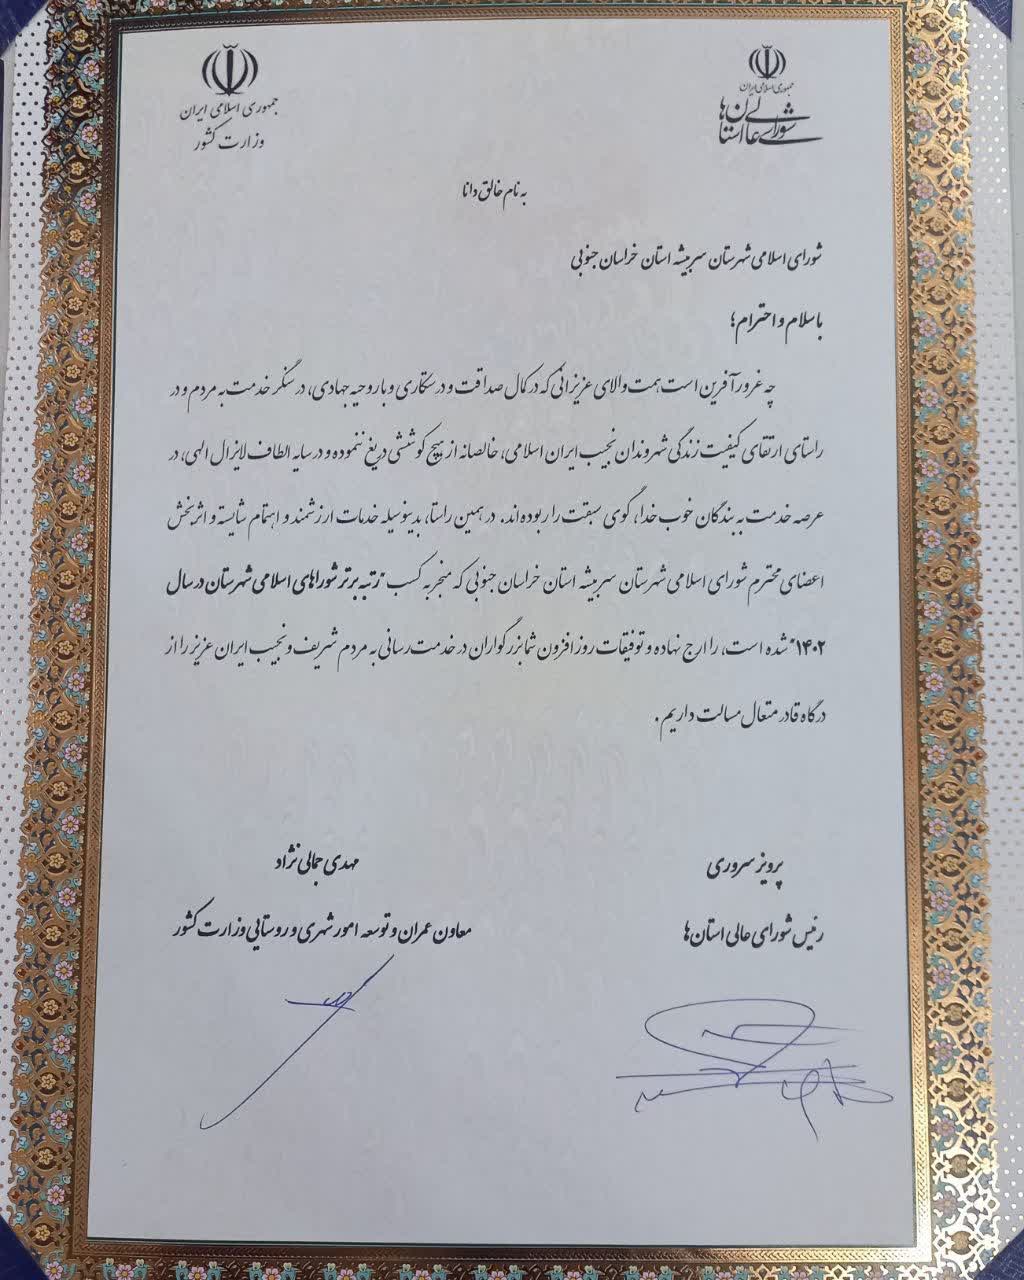 جمهوری اسلامی ایران
شورای عالی استان‌ها
جمهوری اسلامی ایران
وزارت کشور
به نام خالق دانا
شورای اسلامی شهرستان سربیشه استان خراسان جنوبی
با سلام و احترام؛
چه غرورآفرین است همت والای عزیزانی که در کمال صداقت و درستکاری و با روحیه جهادی، در سنگر خدمت به مردم و در
راستای ارتقای کیفیت زندگی شهروندان نجیب ایران اسلامی، خالصانه از هیچ کوششی دریغ ننموده و در سایه الطاف لایزال الهی، در
عرصه خدمت به بندگان خوب خدا، گوی سبقت را ربوده‌اند. در همین راستا، بدینوسیله خدمات ارزشمند و اهتمام شایسته و اثربخش
اعضای محترم شورای اسلامی شهرستان سربیشه استان خراسان جنوبی که منجر به کسب "رتبه برتر شوراهای اسلامی شهرستان در سال
۱۴۰۲" شده است، را ارج نهاده و توفیقات روزافزون شما بزرگواران در خدمت رسانی به مردم شریف و نجیب ایران عزیز را از
درگاه قادر متعال مسالت داریم.
پرویز سروری
رئیس شورای عالی استان‌ها
مهدی جمالی نژاد
معاون عمران و توسعه امور شهری و روستایی وزارت کشور